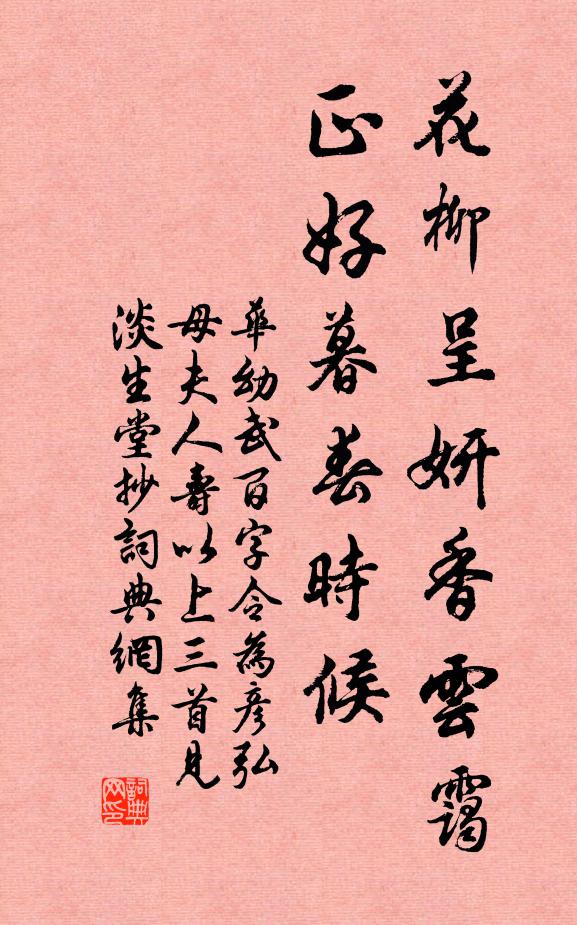 花柳呈妍香雲靄
正好暮春時候
華幼武百字令為彥弘
母夫人壽以上三首見
淡生堂抄詞典網集
詞典網印